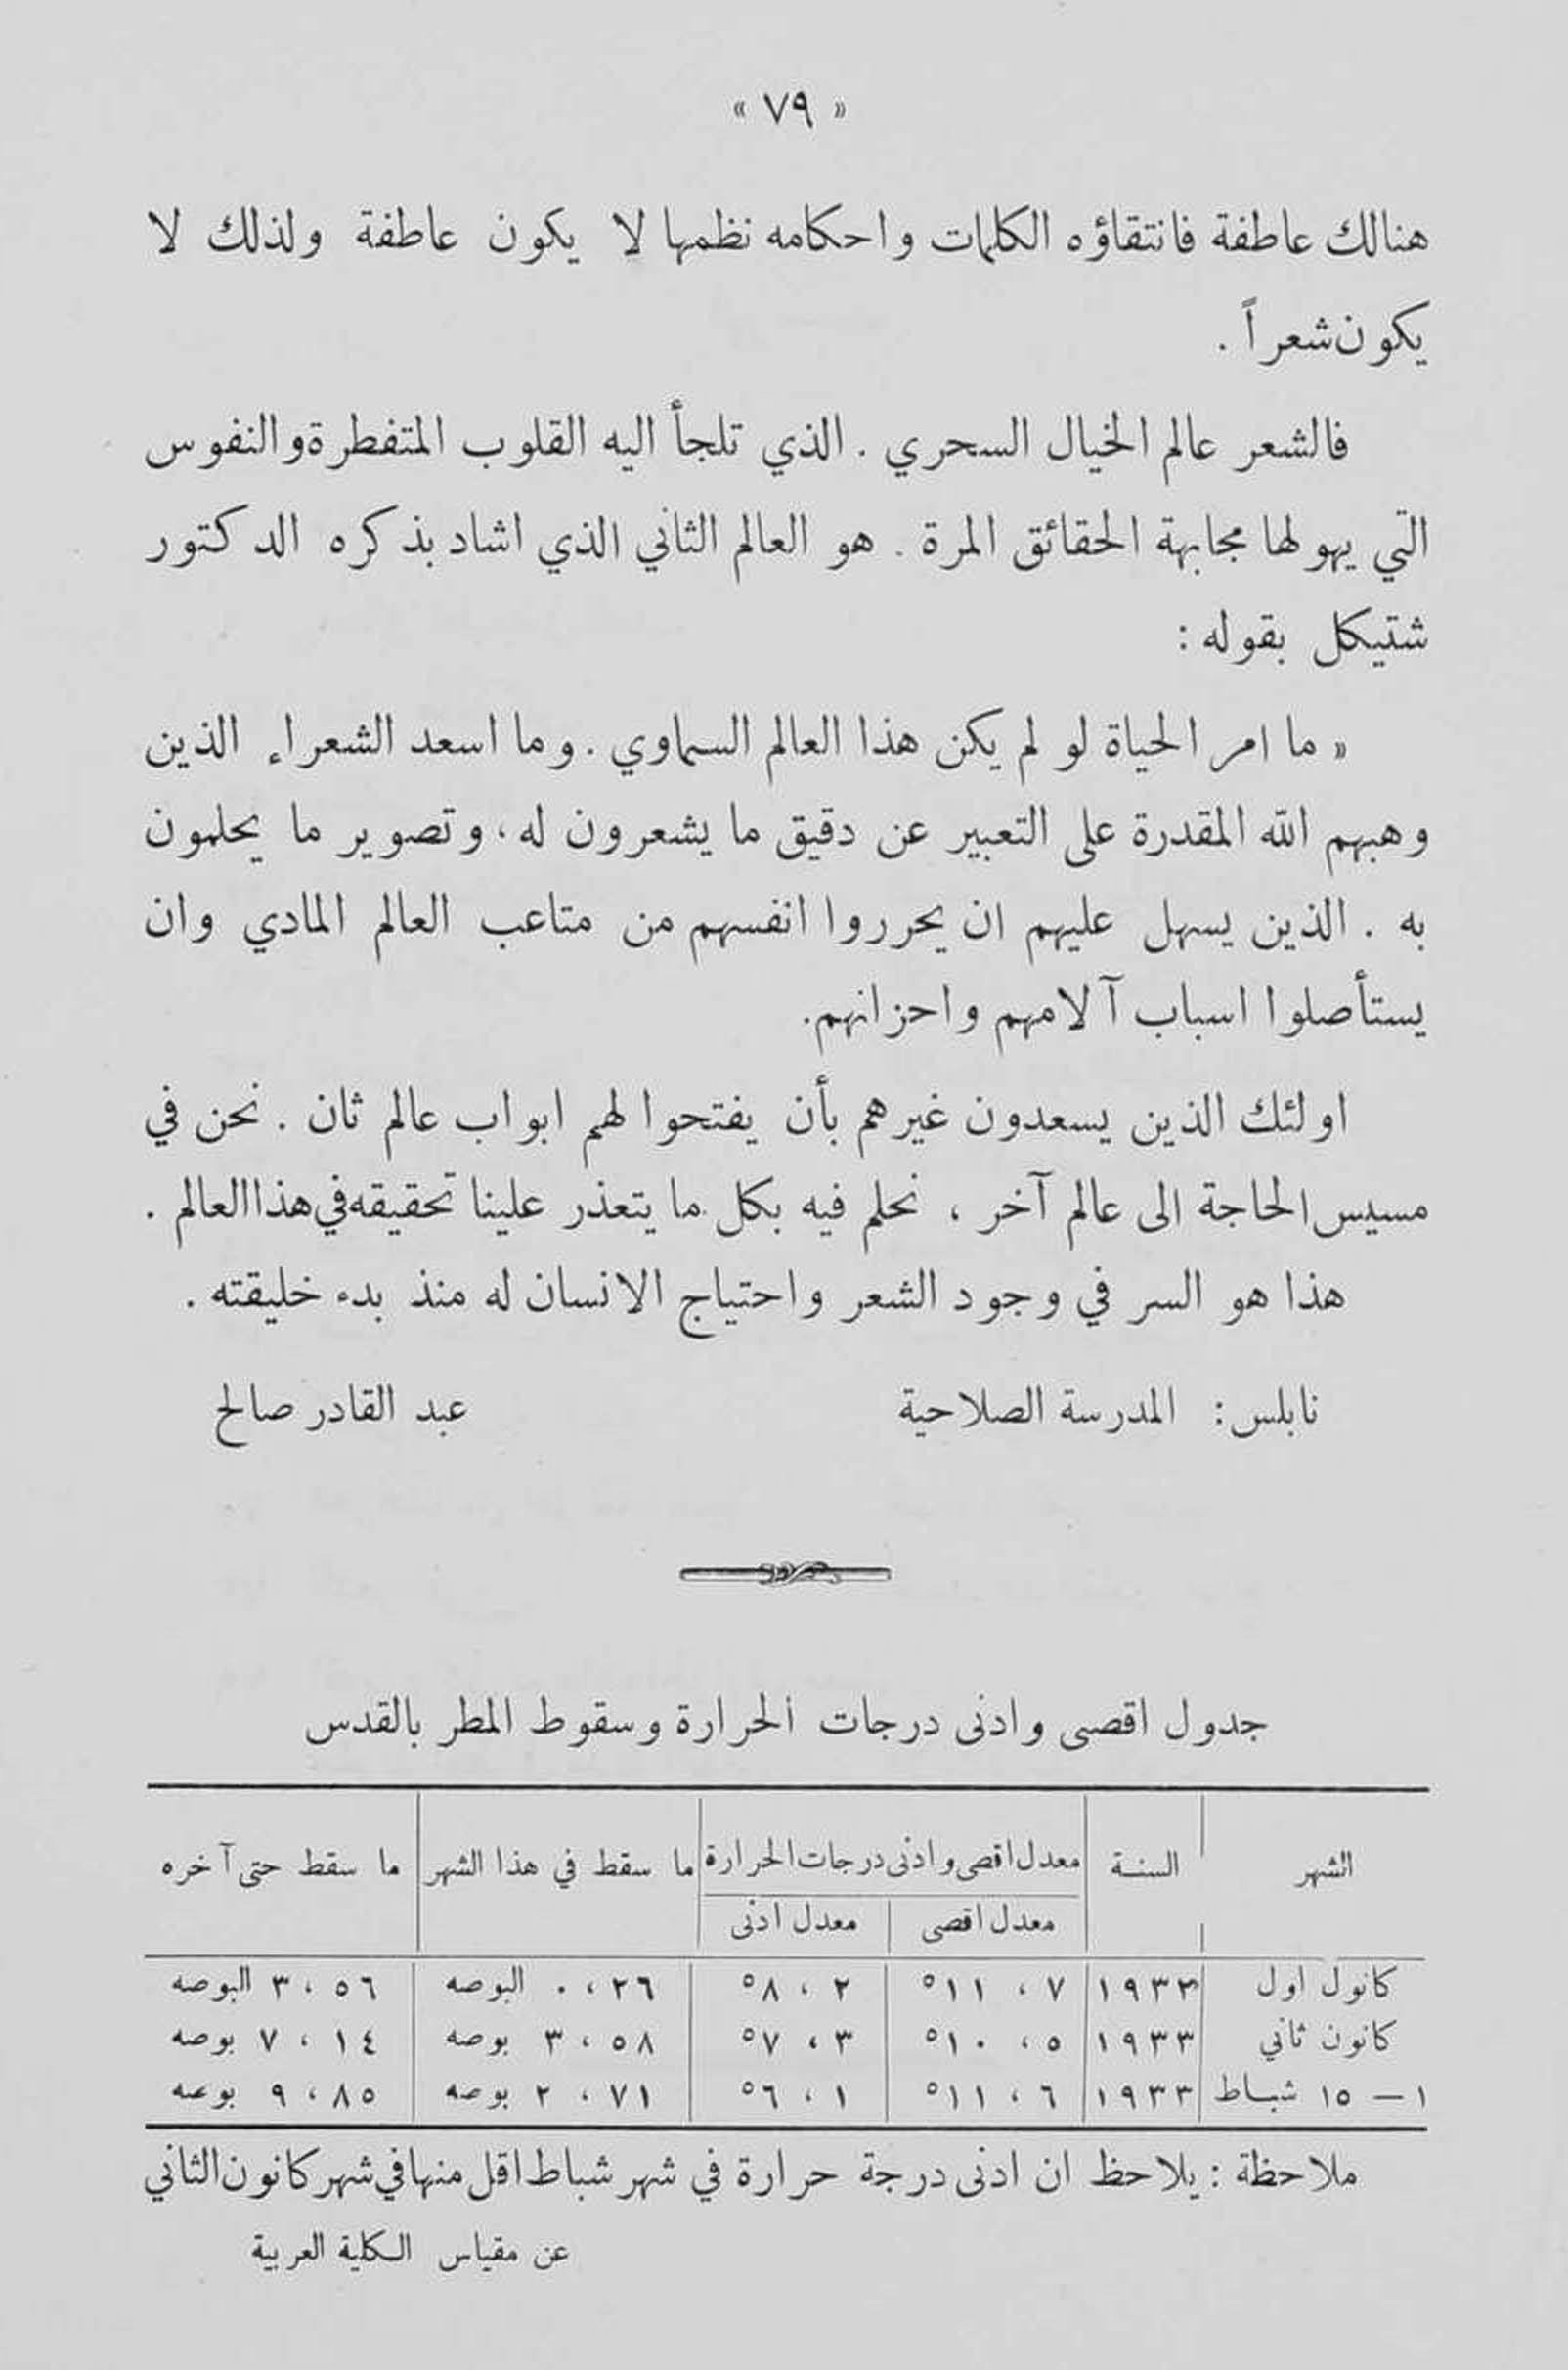 « ٧٩ »
هنالك عاطفة فانتقاؤه الكلمات واحكامه نظمها لا يكون عاطفة ولذلك لا
يكون شعراً .
فالشعر عالم الخيال السحري . الذي تلجأ اليه القلوب المتفطرة والنفوس
التي يهولها مجابهة الحقائق المرة . هو العالم الثاني الذي اشاد بذكره الدكتور
شتيكل بقوله :
« ما امر الحياة لو لم يكن هذا العالم السماوي . وما اسعد الشعراء الذين
وهبهم الله المقدرة على التعبير عن دقيق ما يشعرون له ، وتصوير ما يحلمون
به . الذين يسهل عليهم ان يحرروا انفسهم من متاعب العالم المادي وان
يستأصلوا اسباب آلامهم واحزانهم .
اولئك الذين يسعدون غيرهم بأن يفتحوا لهم ابواب عالم ثان . نحن في
مسيس الحاجة الى عالم آخر ، نحلم فيه بكل ما يتعذر علينا تحقيقه في هذا العالم .
هذا هو السر في وجود الشعر واحتياج الانسان له منذ بدء خليقته .
نابلس : المدرسة الصلاحية عبد القادر صالح
جدول اقصى وادنى درجات الحرارة وسقوط المطر بالقدس
الشهر السنة معدل اقصى وادنى درجات الحرارة ما سقط في هذا الشهر ما سقط حتى آخره
معدل اقصى معدل ادنى
كانول اول ١٩٣٢ ٧ ، ١١° ٢ ، ٨° ٢٦ ، ٠ البوصه ٥٦ ، ٣ البوصه
كانون ثاني ١٩٣٣ ٥ ، ١٠° ٣ ، ٧° ٥٨ ، ٣ بوصه ١٤ ، ٧ بوصه
١ — ١٥ شباط ١٩٣٣ ٦ ، ١١° ١ ، ٦° ٧١ ، ٢ بوصه ٨٥ ، ٩ بوصه
ملاحظة : يلاحظ ان ادنى درجة حرارة في شهر شباط اقل منها في شهر كانون الثاني
عن مقياس الكلية العربية